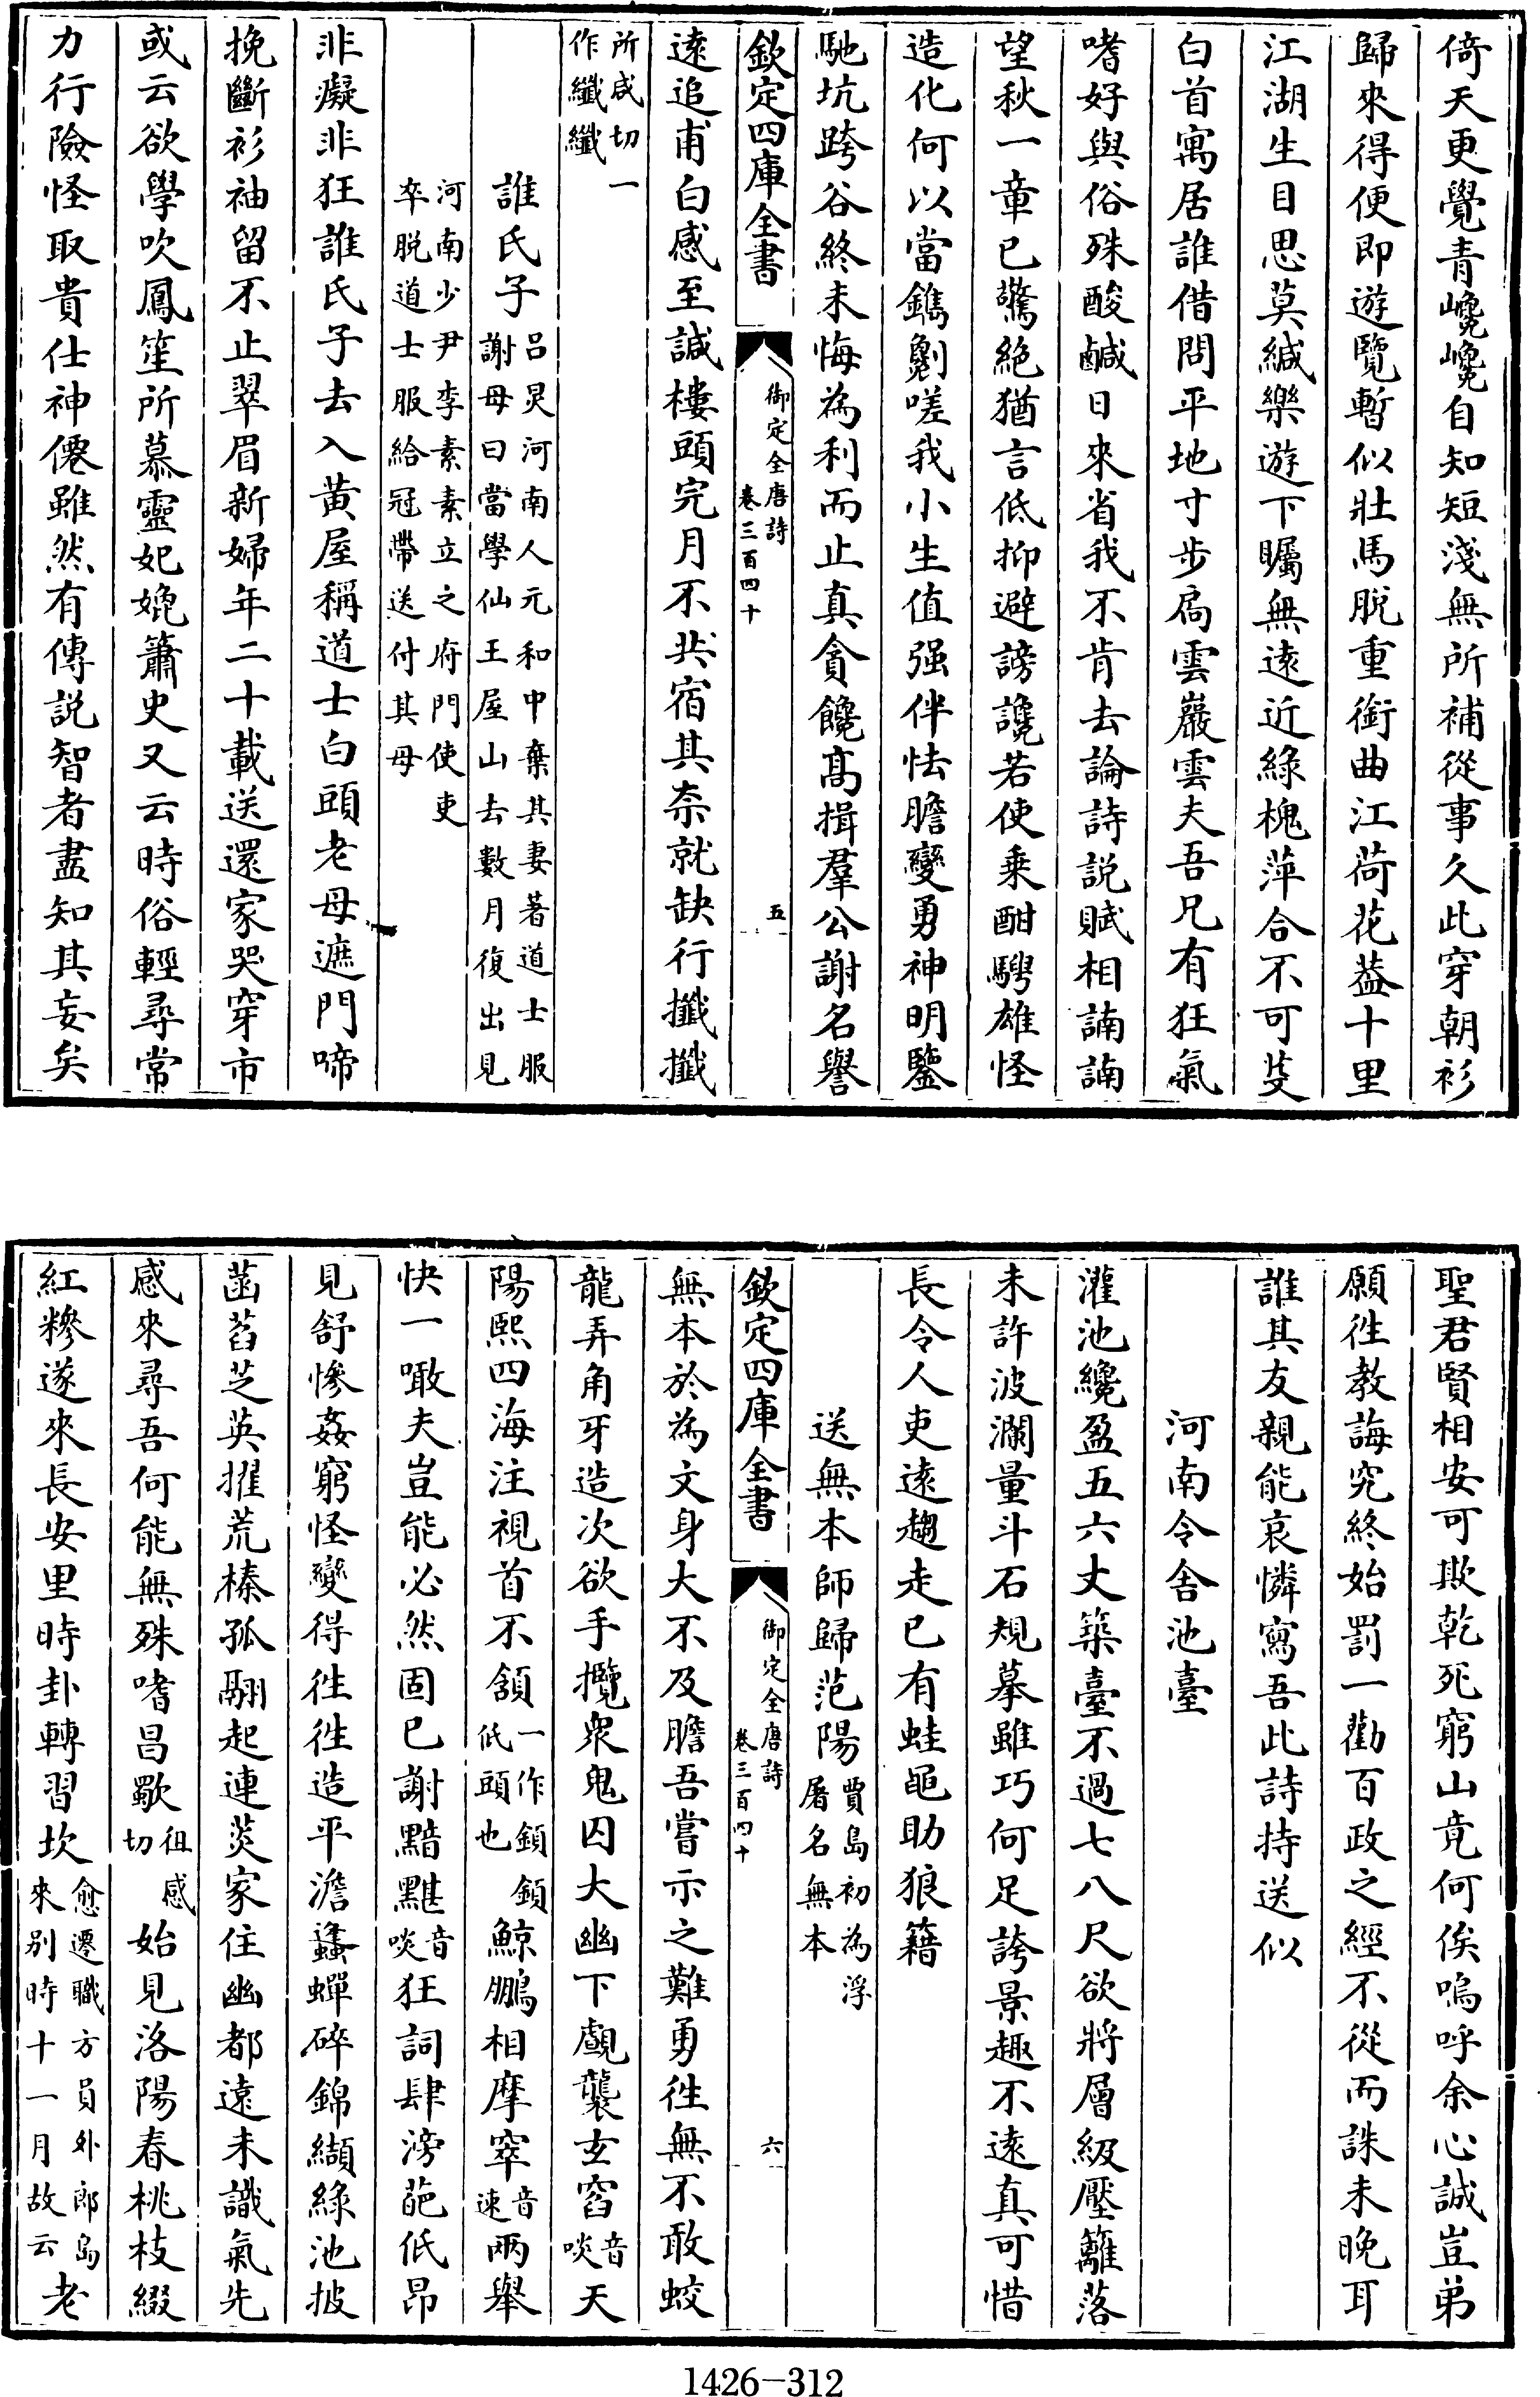 倚天更覺青巉巉自知短淺無所補從事久此穿朝衫
歸來得便即遊覽暫似壯馬脫重銜曲江荷花葢十里
江湖生目思莫緘樂遊下矚無遠近綠槐萍合不可芟
白首寓居誰借問平地寸步扃雲巖雲夫吾兄有狂氣
嗜好與俗殊酸鹹日來省我不肯去論詩説賦相諵諵
望秋一章已驚絶猶言低抑避謗讒若使乗酣騁雄怪
造化何以當鐫劖嗟我小生值强伴怯膽變勇神明鑒
馳坑跨谷終未悔為利而止真貪饞髙揖羣公謝名譽
欽定四庫全書
御定全唐詩
卷三百四十
五
遠追甫白感至諴樓頭完月不共宿其奈就缺行攕攕
所咸切一
作纖纖
誰氏子
吕炅河南人元和中棄其妻著道士服
謝母曰當學仙王屋山去數月復出見
河南少尹李素素立之府門使吏
卒脱道士服給冠帶送付其母
非癡非狂誰氏子去入黄屋稱道士白頭老母遮門啼
挽斷衫袖留不止翠眉新婦年二十載送還家哭穿市
或云欲學吹鳳笙所慕靈妃媲簫史又云時俗輕尋常
力行險怪取貴仕神僊雖然有傳説智者盡知其妄矣
聖君賢相安可欺乾死窮山竟何俟嗚呼余心誠豈弟
願徃教誨究終始罰一勸百政之經不從而誅未晚耳
誰其友親能哀憐寫吾此詩持送似
河南令舍池臺
灌池纔盈五六丈築臺不過七八尺欲將層級壓籬落
未許波瀾量斗石規摹雖巧何足誇景趣不遠真可惜
長令人吏遠趨走已有蛙黽助狼籍
送無本師歸范陽
賈島初為浮
屠名無本
欽定四庫全書
御定全唐詩
卷三百四十
六
無本於為文身大不及膽吾嘗示之難勇徃無不敢蛟
龍弄角牙造次欲手攬衆鬼囚大幽下覷襲玄窞音啖天
陽熙四海注視首不頷一作鎮鎮低頭也鯨鵬相摩窣音速兩舉
快一噉夫豈能必然固已謝黯黮音啖狂詞肆滂葩低昂
見舒慘姦窮怪變得徃徃造平澹蠭蟬碎錦纈綠池披
菡萏芝英擢荒榛孤翮起連菼家住幽都遠未識氣先
感來尋吾何能無殊嗜昌歜徂感切始見洛陽春桃枝綴
紅糝遂來長安里時卦轉習坎愈遷職方員外郎島來别時十一月故云老
1426-312